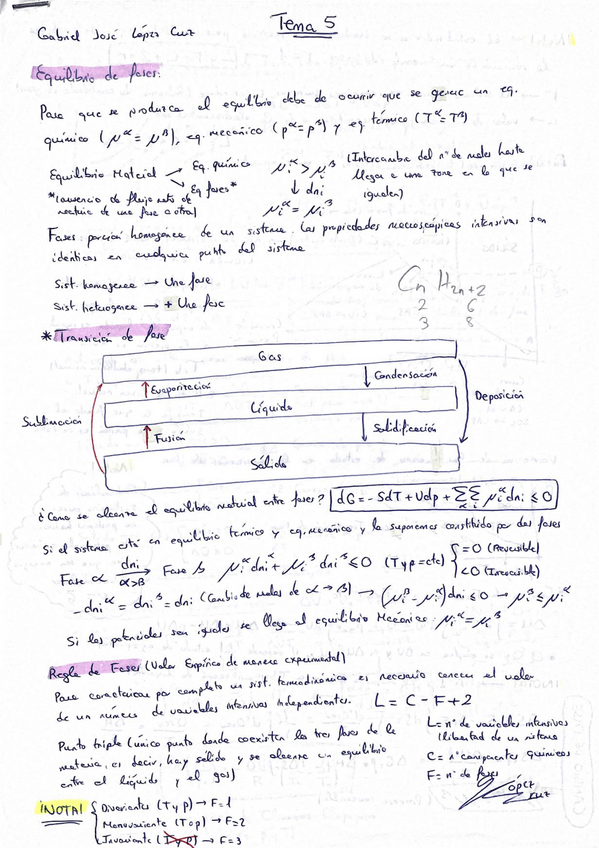 Tema 5
Gabriel José López Cruz
Equilibrio de fases:
Para que se produzca el equilibrio debe de ocurrir que se genere un eq.
químico (μ^α = μ^β), eq. mecánico (p^α = p^β) y eq térmico (T^α = T^β)
Equilibrio Material → Eq. químico
→ Eq fases*
*(ausencia de flujo neto de
materia de una fase a otra)
μi^α > μi^β (Intercambia del nº de moles hasta
↓ dni llegar a una zona en lo que se
μi^α = μi^β igualen)
Fases: porción homogénea de un sistema. Las propiedades macroscópicas intensivas son
idénticas en cualquier punto del sistema
Sist. homogeneo → Una fase
Sist. heterogeneo → + Una fase
Cn H2n+2
2 6
3 8
* Transición de fase
Gas
↑ Evaporización
↓ Condensación
Líquido
Sublimación
Deposición
↑ Fusión
↓ Solidificación
Sólido
¿Como se alcanza el equilibrio material entre fases? dG = -SdT + Vdp + Σα Σi μi^α dni ≤ 0
Si el sistema está en equilibrio térmico y eq. mecánico y lo suponemos constituido por dos fases
Fase α dni → α→β Fase β μi^α dni^α + μi^β dni^β ≤ 0 (T y p = cte) { = 0 (Reversible)
< 0 (Irreversible)
-dni^α = dni^β = dni (Cambio de moles de α → β) → (μi^β - μi^α) dni ≤ 0 → μi^β ≤ μi^α
Si los potenciales son iguales se llega al equilibrio Mecánico: μi^α = μi^β
Regla de Fases (Valor Empírico de manera experimental)
Para caracterizar por completo un sist. termodinámico es necesario conocer el valor
de un número de variables intensivas independientes. L = C - F + 2
Punto triple (único punto donde coexisten las tres fases de la
materia, es decir, hay sólido y se alcanza un equilibrio
entre el líquido y el gas)
L = nº de variables intensivas
(libertad de un sistema
C = nº componentes químicos
F = nº de fases
López
Cruz
¡NOTA! { Divariantes (T y p) → F = 1
Monovariante (T o p) → F = 2
Invariante (T y p) → F = 3